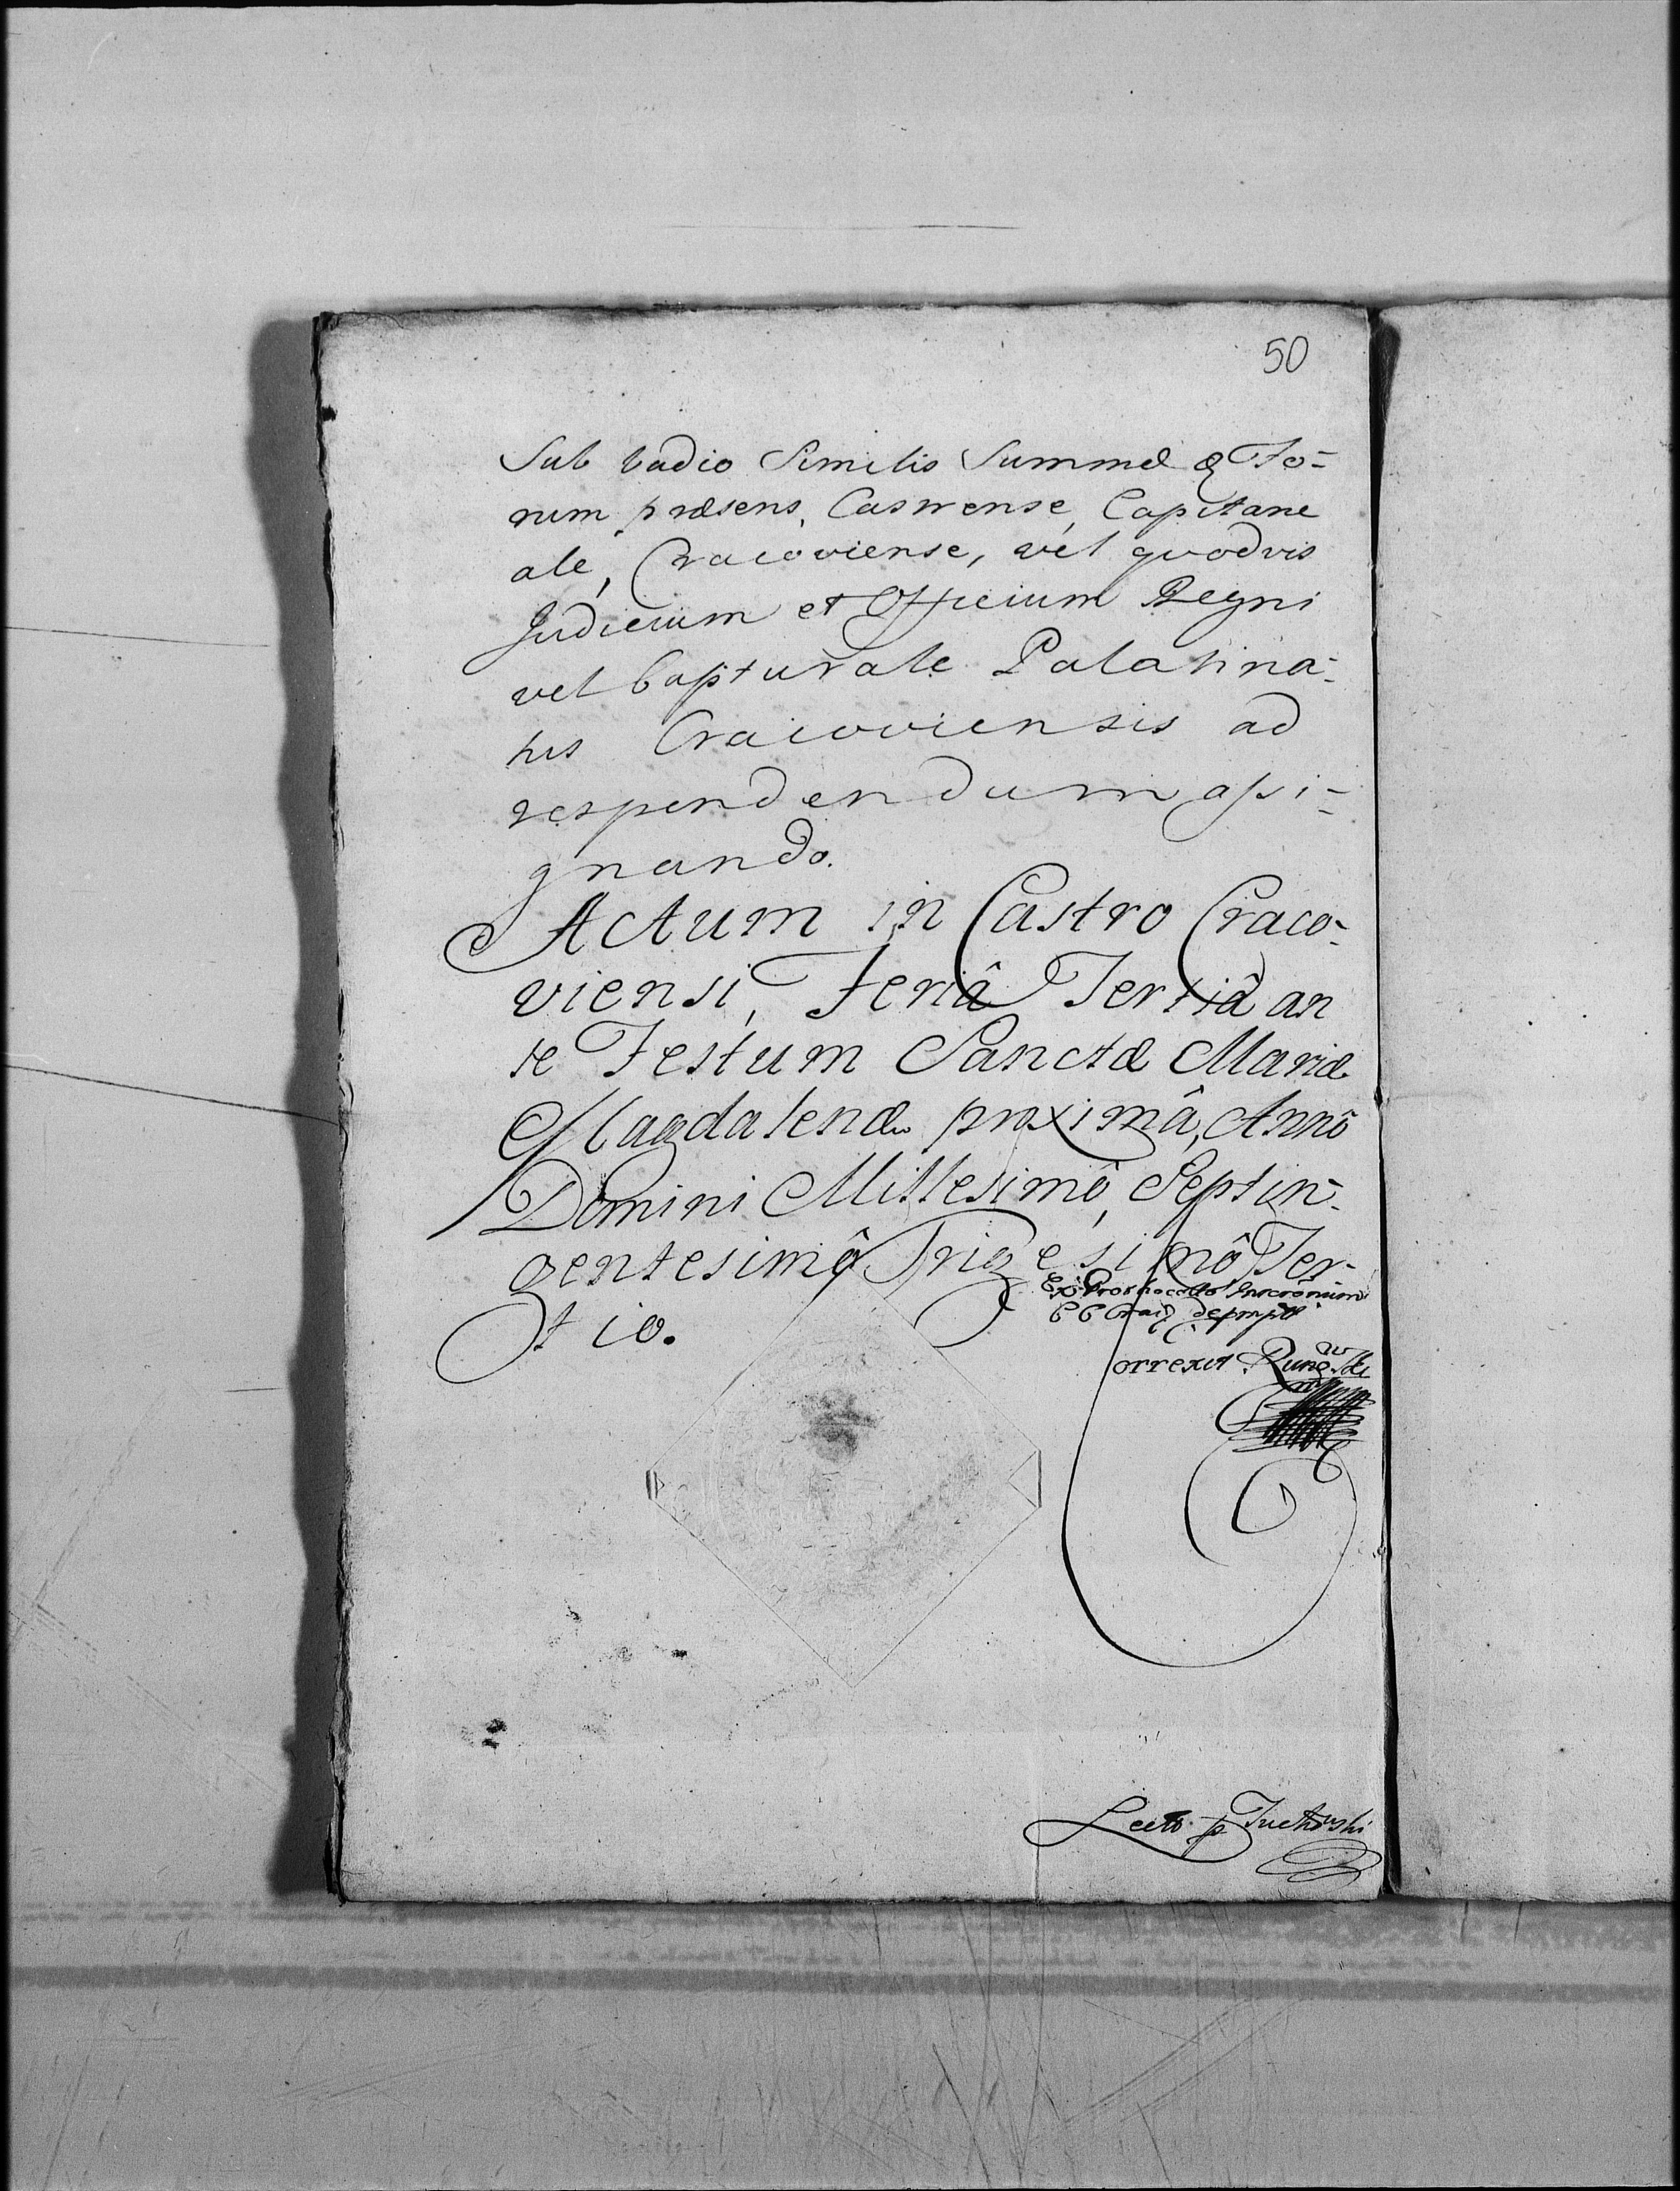 50
Sub vadio Similis Summæ & Fo=
rum præsens, Castrense, Capitane
ale, Cracoviense, vel quodvis
Judicium et Officium Regni
vel Capturale Palatina=
tus Cracoviensis ad
respondendum assi=
gnando.
Actum in Castro Craco=
viensi, Feriâ Tertiâ an
te Festum Sanctæ Mariæ
Magdalenæ proximâ, Annô
Domini Millesimô, Septin=
gentesimô Trigesimô Ter=
tio.
Ex Prothocollo
depmpt
Correxit
Lect. p